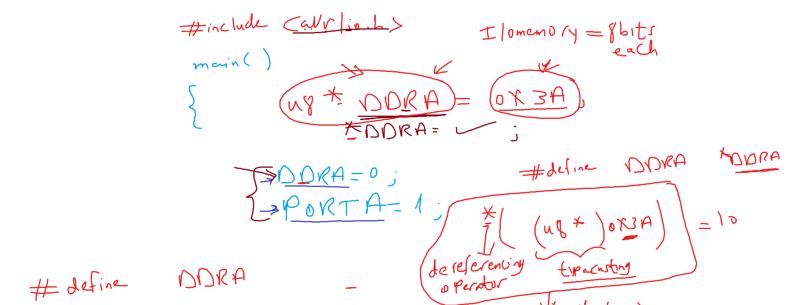 #include <avr/io.h>
I/o memory = 8bits
each
main( )
{
u8 * DDRA = 0X3A;
*DDRA = ;
DDRA = 0 ;
PORTA = 1 ;
#define DDRA *DDRA
*( (u8 *) 0X3A ) = 10
dereferencing operator
typecasting
# define DDRA